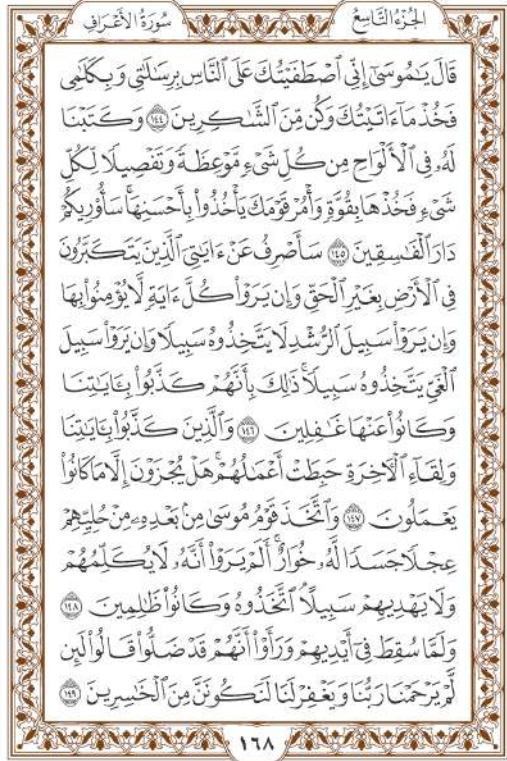 الجُزْءُ التَّاسِعُ
سُورَةُ الأَعْرَافِ
قَالَ يَٰمُوسَىٰٓ إِنِّي ٱصْطَفَيْتُكَ عَلَى ٱلنَّاسِ بِرِسَٰلَٰتِي وَبِكَلَٰمِي
فَخُذْ مَآ ءَاتَيْتُكَ وَكُن مِّنَ ٱلشَّٰكِرِينَ ١٤٤ وَكَتَبْنَا
لَهُۥ فِي ٱلْأَلْوَاحِ مِن كُلِّ شَيْءٍ مَّوْعِظَةً وَتَفْصِيلًا لِّكُلِّ
شَيْءٍ فَخُذْهَا بِقُوَّةٍ وَأْمُرْ قَوْمَكَ يَأْخُذُوا۟ بِأَحْسَنِهَا ۚ سَأُو۟رِيكُمْ
دَارَ ٱلْفَٰسِقِينَ ١٤٥ سَأَصْرِفُ عَنْ ءَايَٰتِيَ ٱلَّذِينَ يَتَكَبَّرُونَ
فِي ٱلْأَرْضِ بِغَيْرِ ٱلْحَقِّ وَإِن يَرَوْا۟ كُلَّ ءَايَةٍ لَّا يُؤْمِنُوا۟ بِهَا
وَإِن يَرَوْا۟ سَبِيلَ ٱلرُّشْدِ لَا يَتَّخِذُوهُ سَبِيلًا وَإِن يَرَوْا۟ سَبِيلَ
ٱلْغَيِّ يَتَّخِذُوهُ سَبِيلًا ۚ ذَٰلِكَ بِأَنَّهُمْ كَذَّبُوا۟ بِـَٔايَٰتِنَا
وَكَانُوا۟ عَنْهَا غَٰفِلِينَ ١٤٦ وَٱلَّذِينَ كَذَّبُوا۟ بِـَٔايَٰتِنَا
وَلِقَآءِ ٱلْءَاخِرَةِ حَبِطَتْ أَعْمَٰلُهُمْ ۚ هَلْ يُجْزَوْنَ إِلَّا مَا كَانُوا۟
يَعْمَلُونَ ١٤٧ وَٱتَّخَذَ قَوْمُ مُوسَىٰ مِنۢ بَعْدِهِۦ مِنْ حُلِيِّهِمْ
عِجْلًا جَسَدًا لَّهُۥ خُوَارٌ ۚ أَلَمْ يَرَوْا۟ أَنَّهُۥ لَا يُكَلِّمُهُمْ
وَلَا يَهْدِيهِمْ سَبِيلًا ۘ ٱتَّخَذُوهُ وَكَانُوا۟ ظَٰلِمِينَ ١٤٨
وَلَمَّا سُقِطَ فِيٓ أَيْدِيهِمْ وَرَأَوْا۟ أَنَّهُمْ قَدْ ضَلُّوا۟ قَالُوا۟ لَئِن
لَّمْ يَرْحَمْنَا رَبُّنَا وَيَغْفِرْ لَنَا لَنَكُونَنَّ مِنَ ٱلْخَٰسِرِينَ ١٤٩
١٦٨